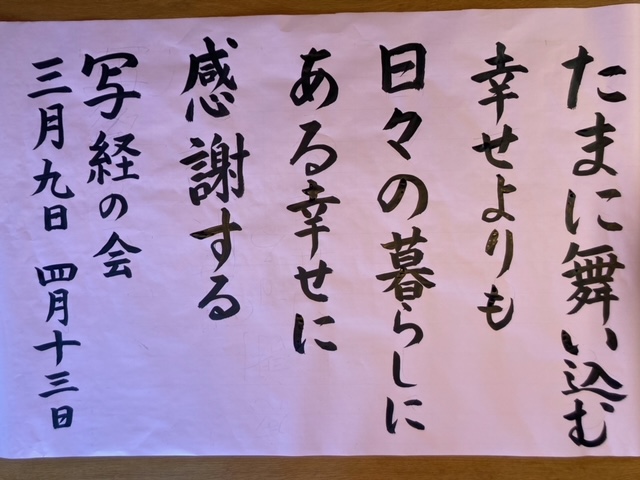 たまに舞い込む
幸せよりも
日々の暮らしに
ある幸せに
感謝する
写経の会
三月九日 四月十三日